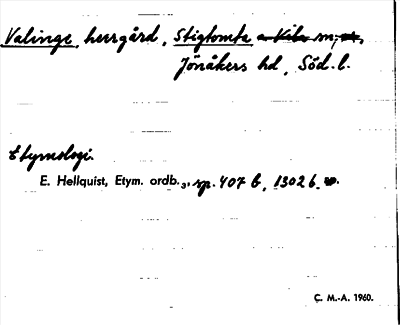 Valinge, herrgård, Stigtomta o Kila sn,
Jönåkers hd, Söd. l.
Etymologi.
E. Hellquist, Etym. ordb.3, sp. 407 b, 1302 b.
Ç. M.-A. 1960.